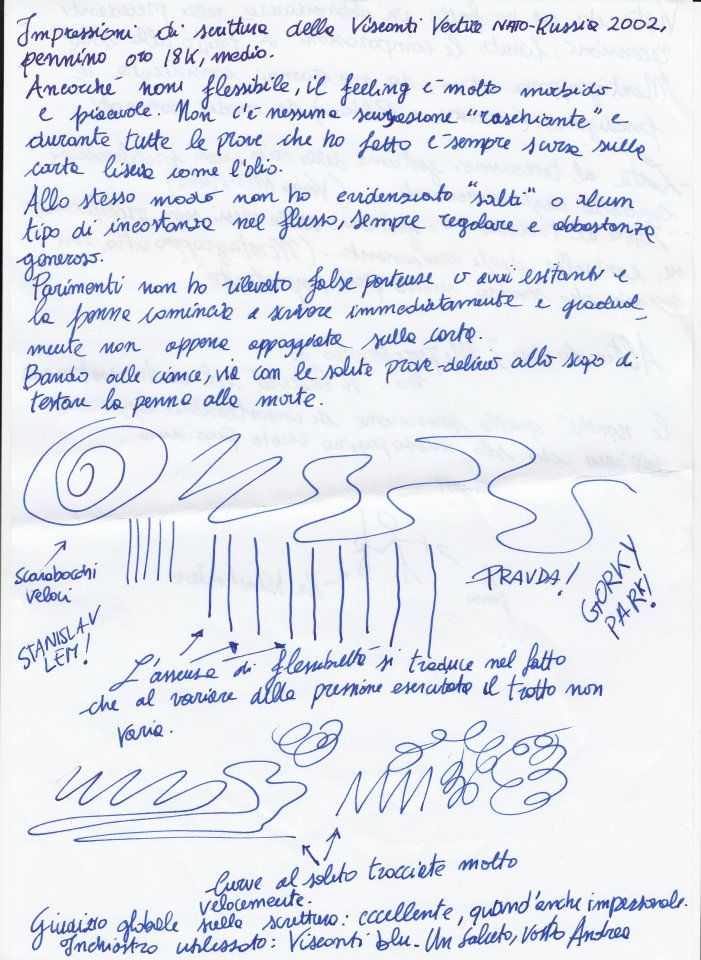 Impressioni di scrittura della Visconti Vertice NATO-Russia 2002,
pennino oro 18K, medio.
Ancorché non flessibile, il feeling è molto morbido
e piacevole. Non c'è nessuna sensazione "raschiante" e
durante tutte le prove che ho fatto è sempre scorsa sulla
carta liscia come l'olio.
Allo stesso modo non ho evidenziato "salti" o alcun
tipo di incostanza nel flusso, sempre regolare e abbastanza
generoso.
Parimenti non ho rilevato false partenze o avvii esitanti e
la penna comincia a scrivere immediatamente e gradual_
mente non appena appoggiata sulla carta.
Bando alle ciance, via con le solite prove-delirio allo scopo di
testare la penna alla morte.
scarabocchi
veloci
PRAVDA!
GORKY
PARK!
STANISLAV
LEM!
L'assenza di flessibilità si traduce nel fatto
che al variare della pressione esercitata il tratto non
varia.
Curve al solito tracciate molto
velocemente.
Giudizio globale sulla scrittura: eccellente, quand'anche impersonale.
Inchiostro utilizzato: Visconti blu. Un saluto, vostro Andrea